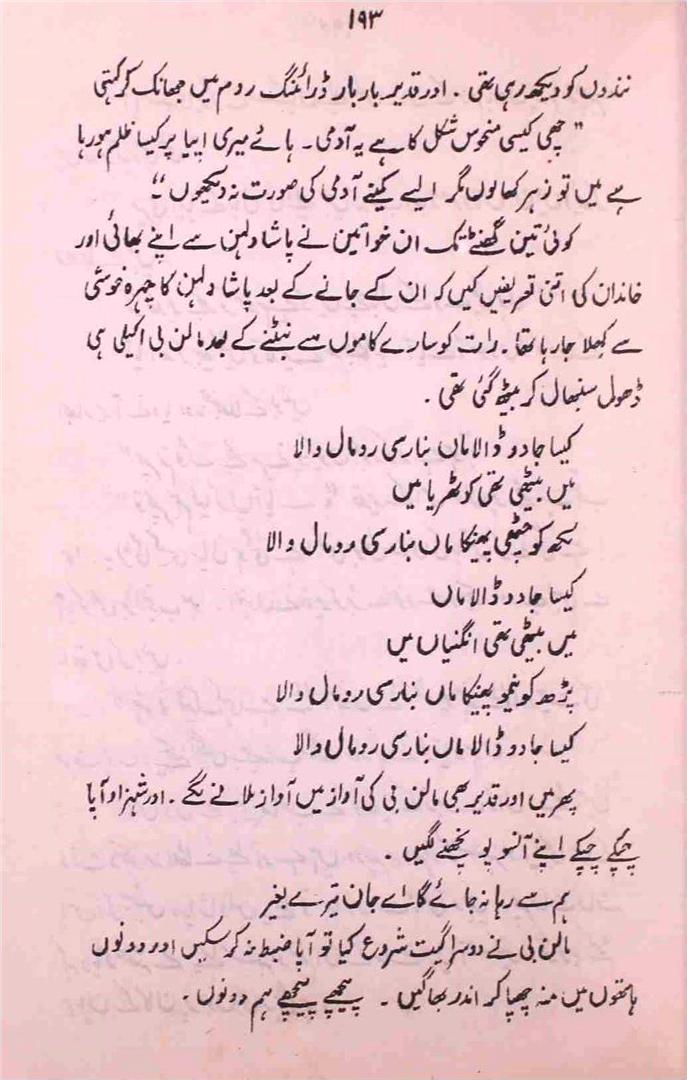 ۱۹۳
نندوں کو دیکھ رہی تھی ۔ اور قدیر بار بار ڈرائنگ روم میں جھانک کر کہتی
" چھی کیسی منحوس شکل کا ہے یہ آدمی ۔ ہائے میری اپیا پر کیسا ظلم ہو رہا
ہے میں تو زہر کھا لوں مگر ایسے کمینے آدمی کی صورت نہ دیکھوں "
کوئی تین گھنٹے تک ان خواتین نے پاشا دلہن سے اپنے بھائی اور
خاندان کی اتنی تعریفیں کیں کہ ان کے جانے کے بعد پاشا دلہن کا چہرہ خوشی
سے کھلا جا رہا تھا ۔ رات کو سارے کاموں سے نبٹنے کے بعد مالن بی اکیلی ہی
ڈھول سنبھال کر بیٹھ گئی تھی ۔
کیسا جادو ڈالا ماں بنارسی رومال والا
میں بیٹھی تھی کوٹھریا میں
لکھ کو چٹھی پھینکا ماں بنارسی رومال والا
کیسا جادو ڈالا ماں
میں بیٹھی تھی انگنیاں میں
پڑھ کو نیمبو پھینکا ماں بنارسی رومال والا
کیسا جادو ڈالا ماں بنارسی رومال والا
پھر میں اور قدیر بھی مالن بی کی آواز میں آواز ملانے لگے ۔ اور شہزاد آپا
چپکے چپکے اپنے آنسو پونچھنے لگیں ۔
ہم سے رہا نہ جائے گا اے جان تیرے بغیر
مالن بی نے دوسرا گیت شروع کیا تو آپا ضبط نہ کر سکیں اور دونوں
ہاتھوں میں منہ چھپا کر اندر بھاگیں ۔ پیچھے پیچھے ہم دونوں ۔